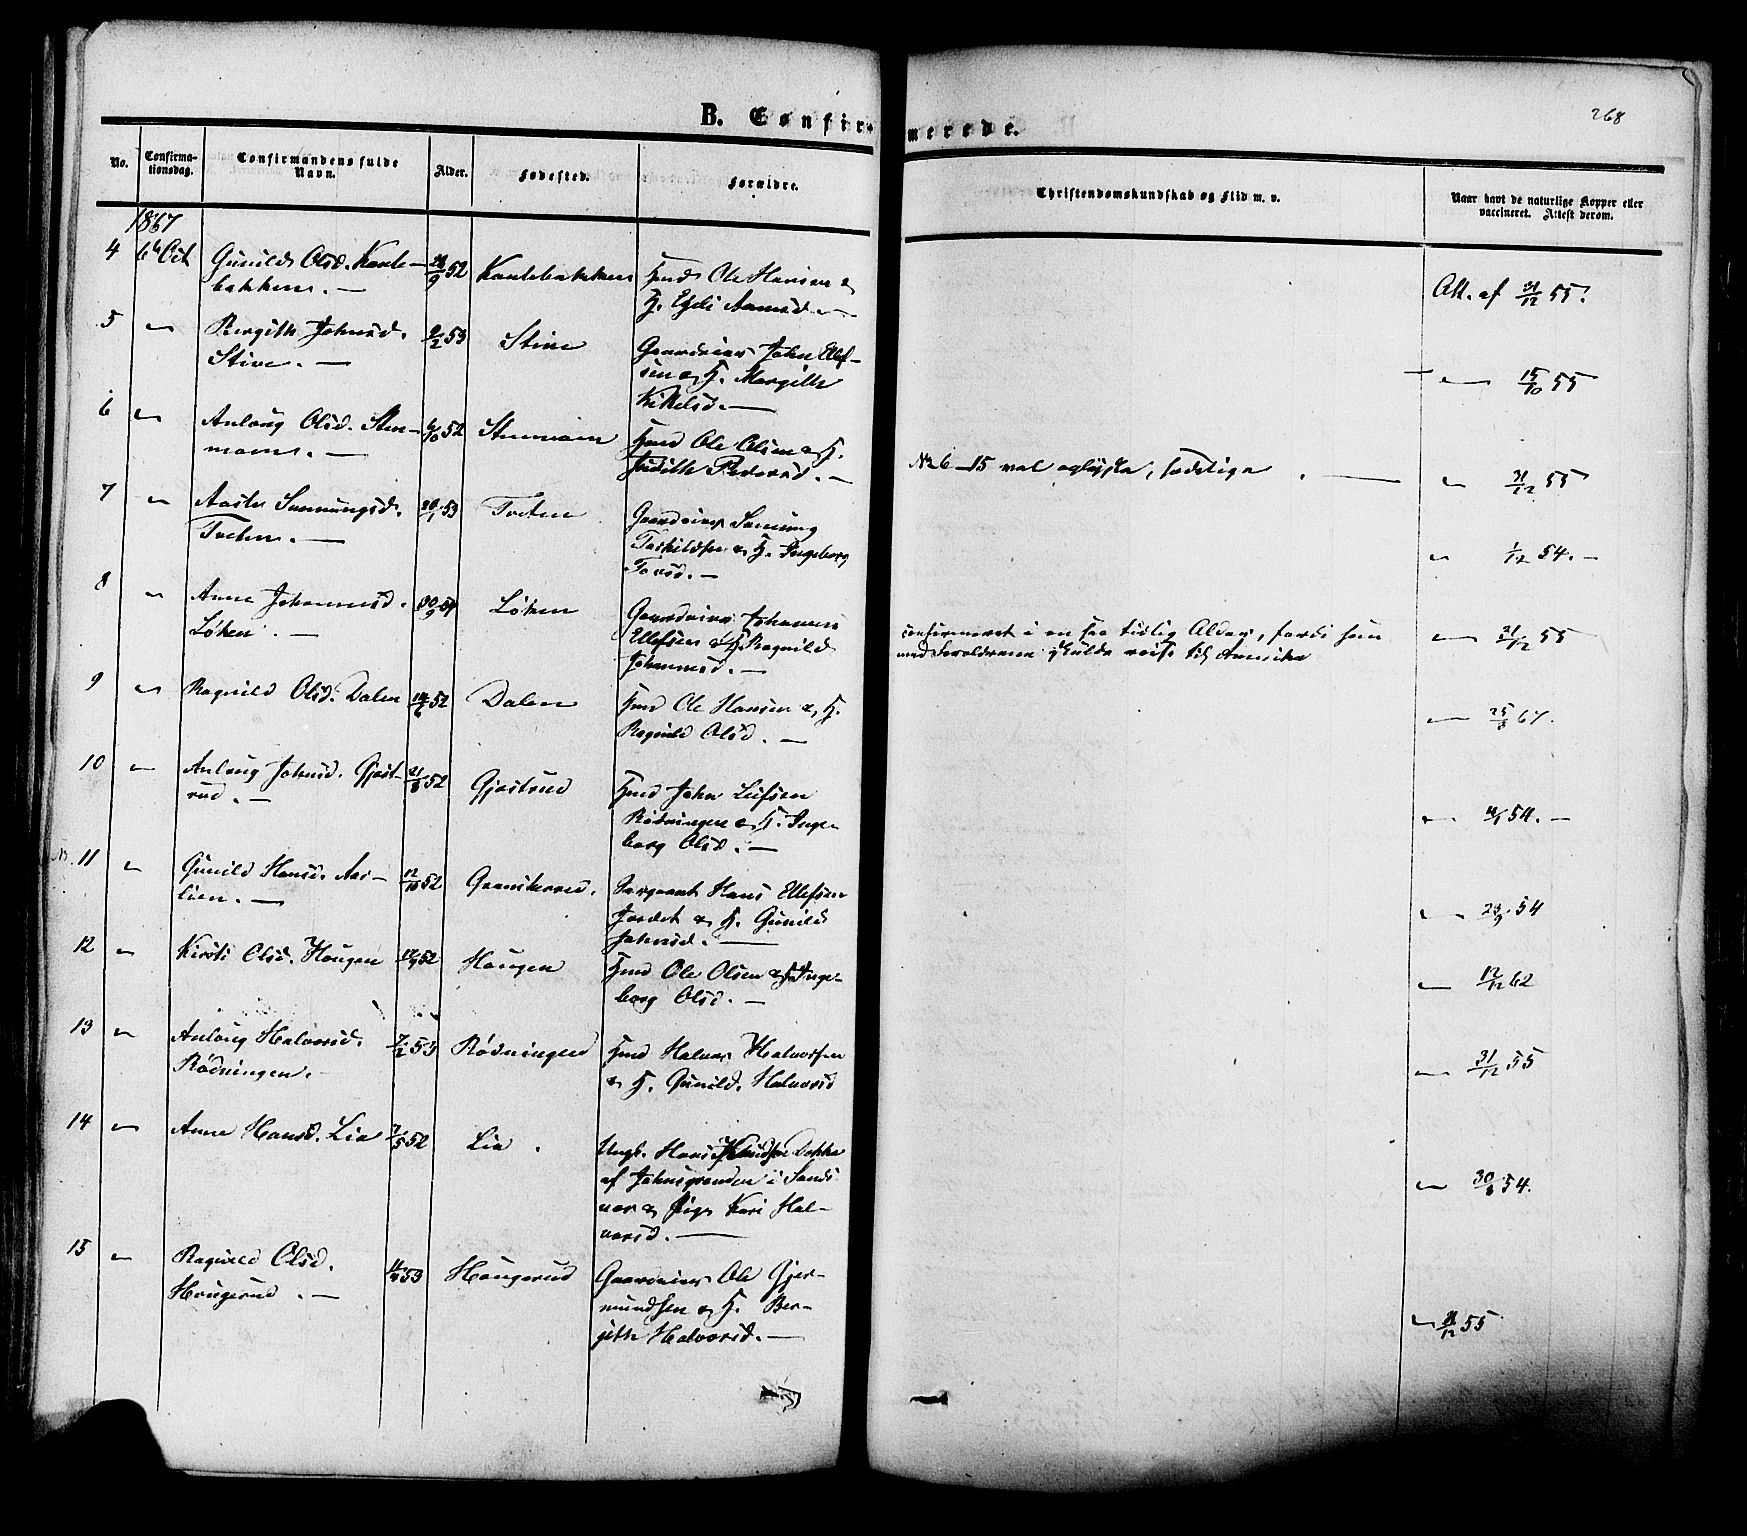 B. Confirmerede.
268
No.
Confirma-
tionsdag.
Confirmandens fulde
Navn.
Alder.
Fødested.
Forældre.
Christendomskundskab og Flid m. v.
Naar havt de naturlige Kopper eller
vaccineret. Attest derom.
1867
4 6te Oct Gunild Olsd. Kaste-
bakken. — 52 Kastebakken Hmd Ole Hansen &
H. Eldi Aamsd. —
Att. af 31/12 55.
5 — Bergith Johnsd.
Stive. — 9/2 53 Stive Gaardeier John Ellef-
sen & H. Margith
Kittelsd. —
— 15/10 55
6 — Anlaug Olsd. Sten-
moen. — 6/10 52 Stenmoen Hmd Ole Olsen & H.
Judith Pedersd. —
No 6–15 vel oplyste, sædelige. —
— 31/12 55
7 — Aaste Sannungsd.
Tveten. — 20/1 53 Tveten Gaardeier Sannung
Tarkildsen & H. Ingeborg
Torsd. —
— 1/12 54. —
8 — Anne Johannesd.
Løken. — 30/9 54 Løken Gaardeier Johannes
Ellefsen & H. Ragnild
Johannesd. —
confirmeret i en saa tidlig Alder, fordi hun
med Forældrene skulde reise til Amerika
— 31/12 55
9 — Ragnild Olsd. Dalen 52 Dalen Hmd Ole Hansen & H.
Ragnild Olsd. —
— 67.
10 — Anlaug Johnsd. Gjøst-
rud. — 21/8 52 Gjøstrud Hmd John Leifsen
Rødningen & H. Inge-
borg Olsd. —
— 54. —
11 — Gunild Hansd. Aas-
lien. — 12/10 52 Sergeant Hans Ellefsen
Jordet & H. Gunild
Johnsd. —
— 54
12 — Kirsti Olsd. Haugen 52 Haugen Hmd Ole Olsen & H. Inge-
borg Olsd. —
— 12/12 62
13 — Anlaug Halvorsd.
Rødningen. 7/2 53 Rødningen Hmd Halvor Halvorsen
& H. Gunild. Halvorsd
— 31/12 55
14 — Anne Hansd. Lia 7/5 52 Lia. Ungk. Hans Knudsen Dokka
af Johnsgrenden i Sands-
vær & Pige Kari Hal-
vorsd. —
— 30/8 54.
15 — Ragnild Olsd.
Haugerud. — 53 Haugerud Gaardeier Ole Gjer-
mundsen & H. Ber-
gith Halvorsd. —
— 31/12 55